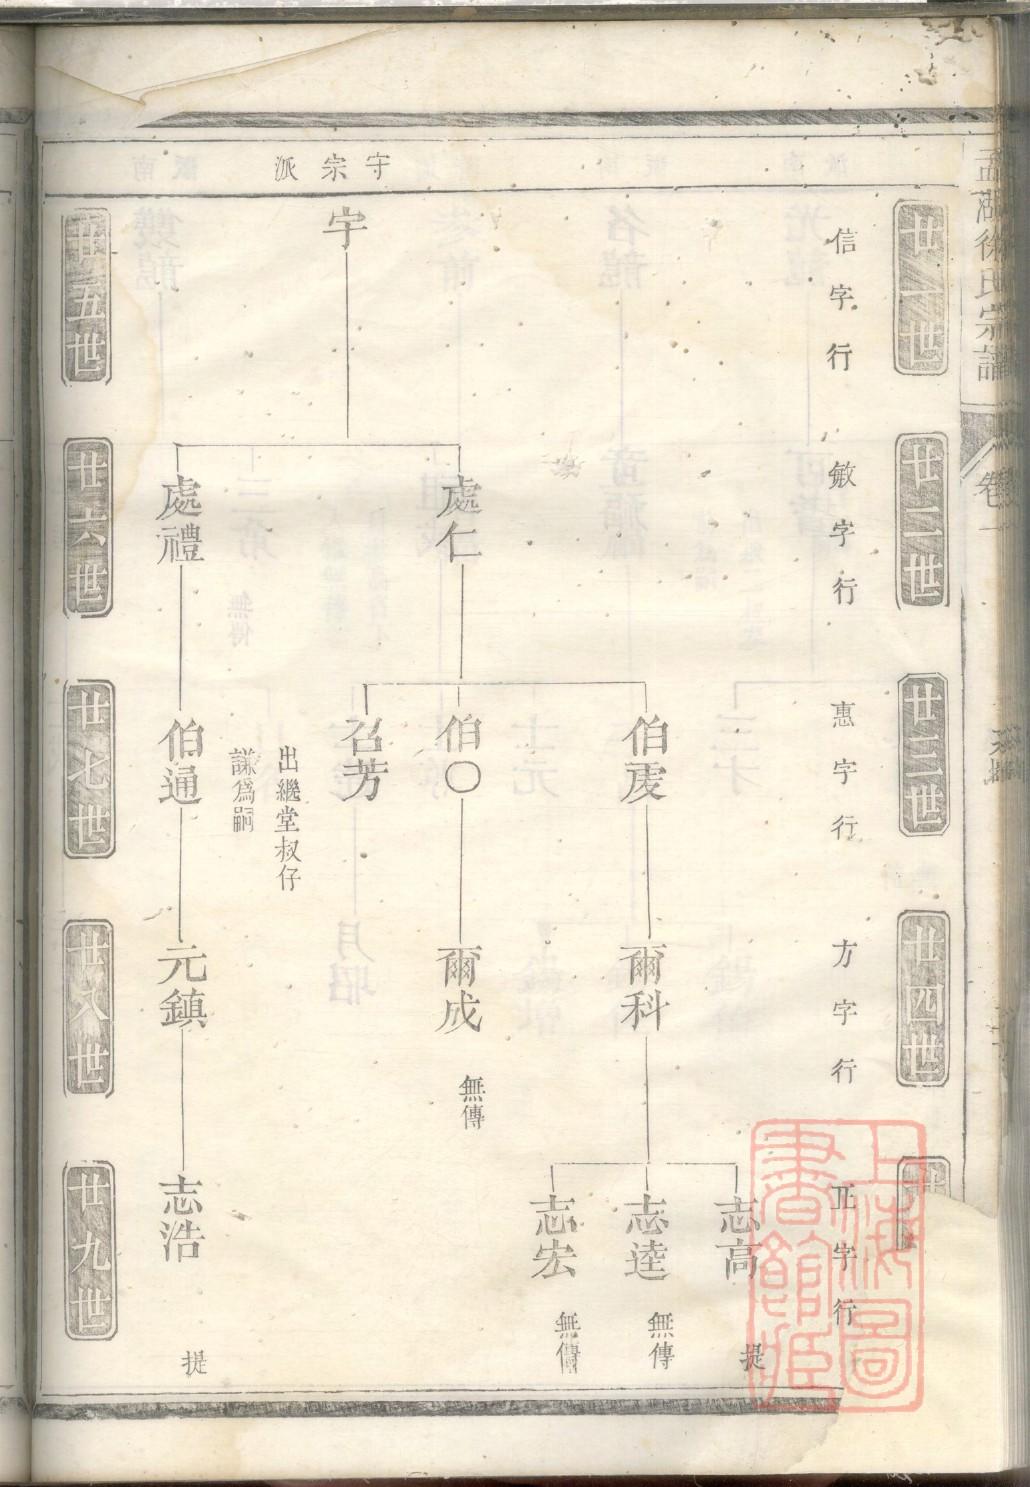 孟湖徐氏宗譜
卷一
廿一世
廿二世
廿三世
廿四世
信字行
敏字行
惠字行
方字行
正字行
守宗派
宇
處仁
處禮
伯虔
伯〇
召芳
出繼堂叔仔
謙爲嗣
伯通
爾科
爾成
無傳
元鎮
志高
提
志逵
無傳
志宏
無傳
志浩
提
廿五世
廿六世
廿七世
廿八世
廿九世
上海圖
書館藏